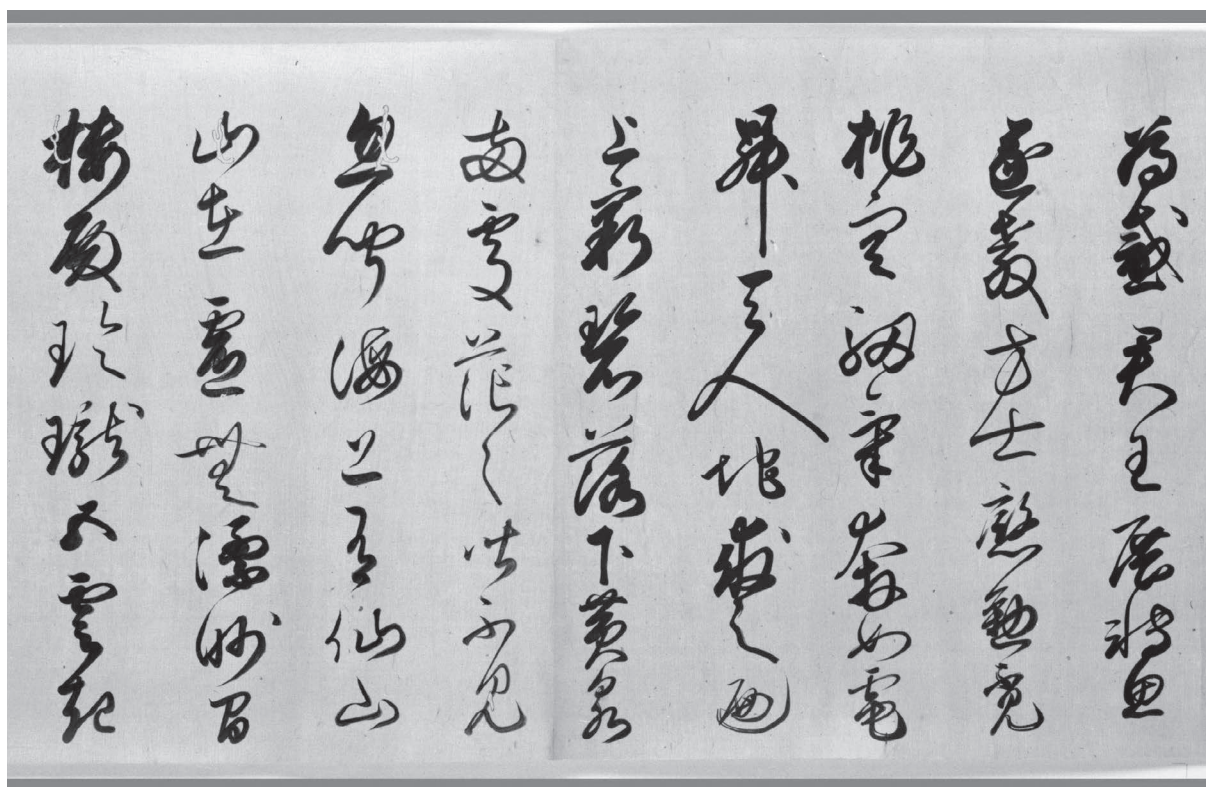 為感君王展轉思
遂教方士慇懃覓
排空馭氣奔如電
昇天入地求之遍
上窮碧落下黃泉
兩處茫々皆不見
忽聞海上有仙山
山在虛無漂眇間
樓殿玲瓏五雲起